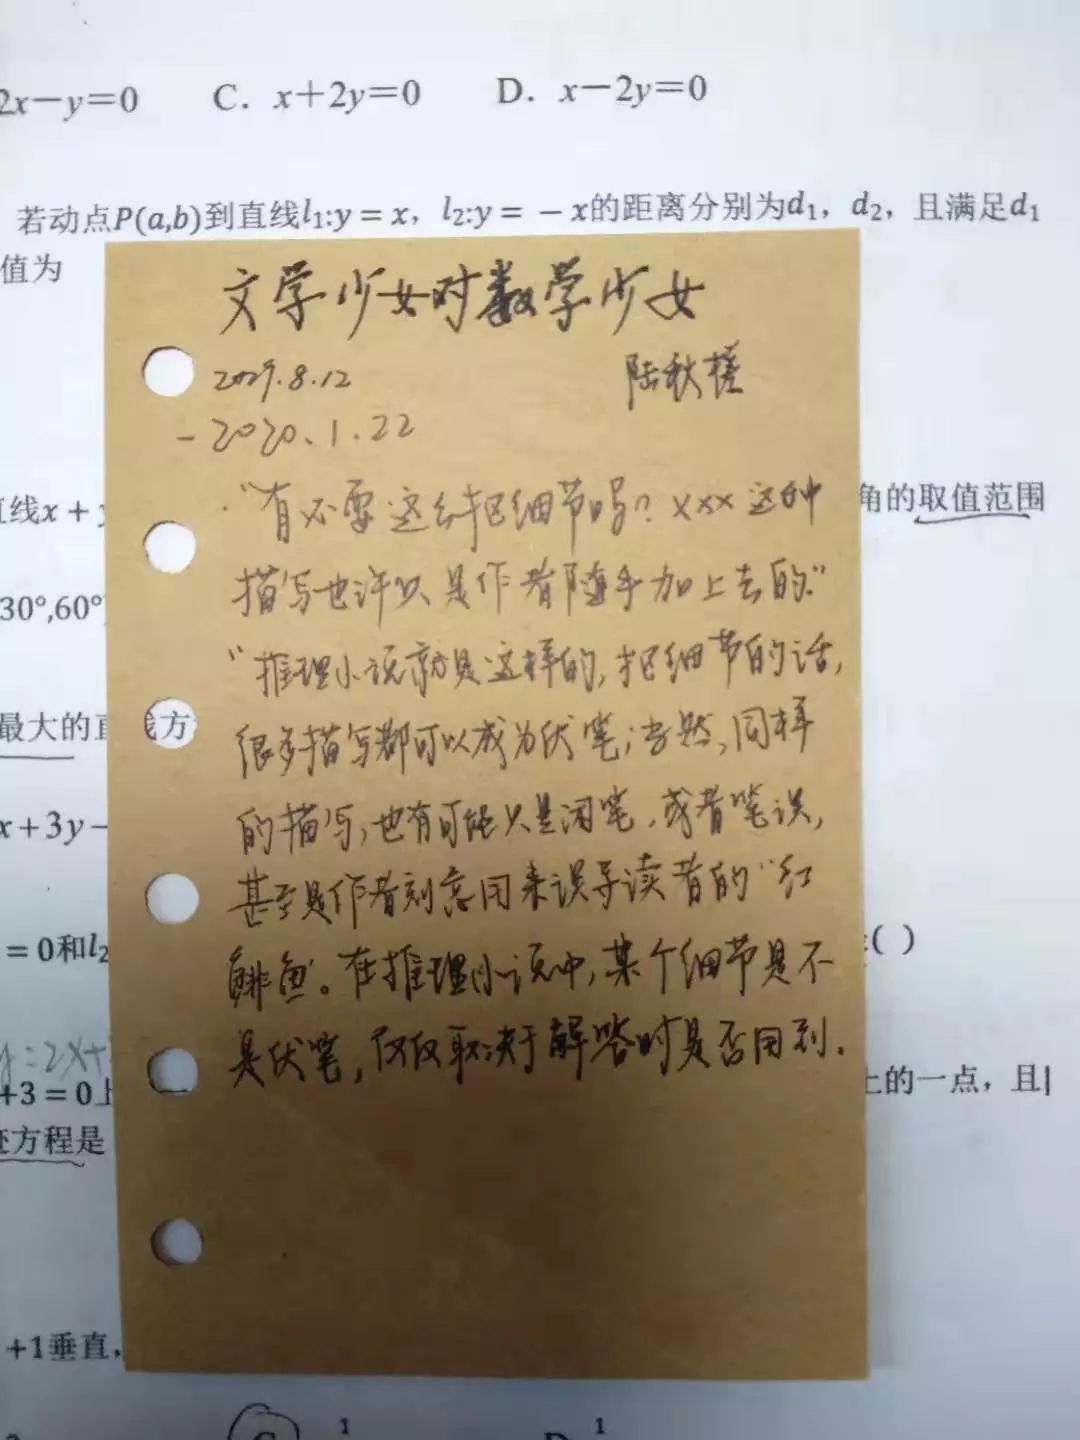 2x−y=0 C. x+2y=0 D. x−2y=0
若动点P(a,b)到直线l₁:y = x, l₂:y = −x的距离分别为d₁, d₂, 且满足d₁
值为
文学少女对数学少女
陆秋槎
8.12
-2020.1.22
"有必要这么抠细节吗? xxx 这种
描写也许只是作者随手加上去的."
"推理小说就是这样的, 抠细节的话,
很多描写都可以成为伏笔; 当然, 同样
的描写, 也有可能只是闲笔, 或者笔误,
甚至是作者刻意用来误导读者的"红
鲱鱼"。在推理小说中, 某个细节是不
是伏笔, 仅仅取决于解答时是否用到.
线x +
角的取值范围
30°,60°
最大的直线方
x + 3y −
= 0和l₂
( )
y=2x+
+3 = 0上
上的一点, 且|
迹方程是
+1垂直,
C 1
D 1